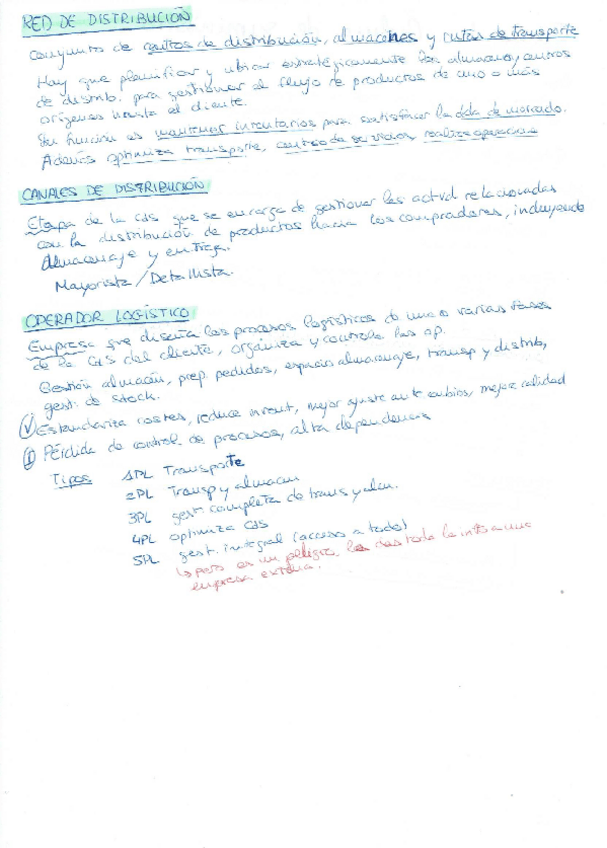 RED DE DISTRIBUCIÓN
Conjunto de centros de distribución, almacenes y rutas de transporte
Hay que planificar y ubicar estratégicamente los almacenes, centros
de distrib. para gestionar el flujo de productos de uno o más
orígenes hasta el cliente.
Su función es mantener inventarios para satisfacer la dda de mercado.
Además optimiza transporte, centro de servicios, realiza operaciones
CANALES DE DISTRIBUCIÓN
Etapa de la CdS que se encarga de gestionar las activd relacionadas
con la distribución de productos hacia los compradores, incluyendo
Almacenaje y entrega.
Mayorista / Detallista.
OPERADOR LOGÍSTICO
Empresa que diseña los procesos logísticos de una o varias fases
de la CdS del cliente, organiza y controla las op.
Gestión almacén, prep. pedidos, espacio almacenaje, transp y distrib,
gest. de stock.
Estandariza costes, reduce invent, mejor ajuste ante cambios, mejor calidad
Pérdida de control de procesos, alta dependencia
Tipos 1PL Transporte
2PL Transp y almacen
3PL gest completa de trans y alm.
4PL optimiza CdS
5PL gest. integral (acceso a todo)
↳ pero es un peligro, le das toda la info a una
empresa externa.